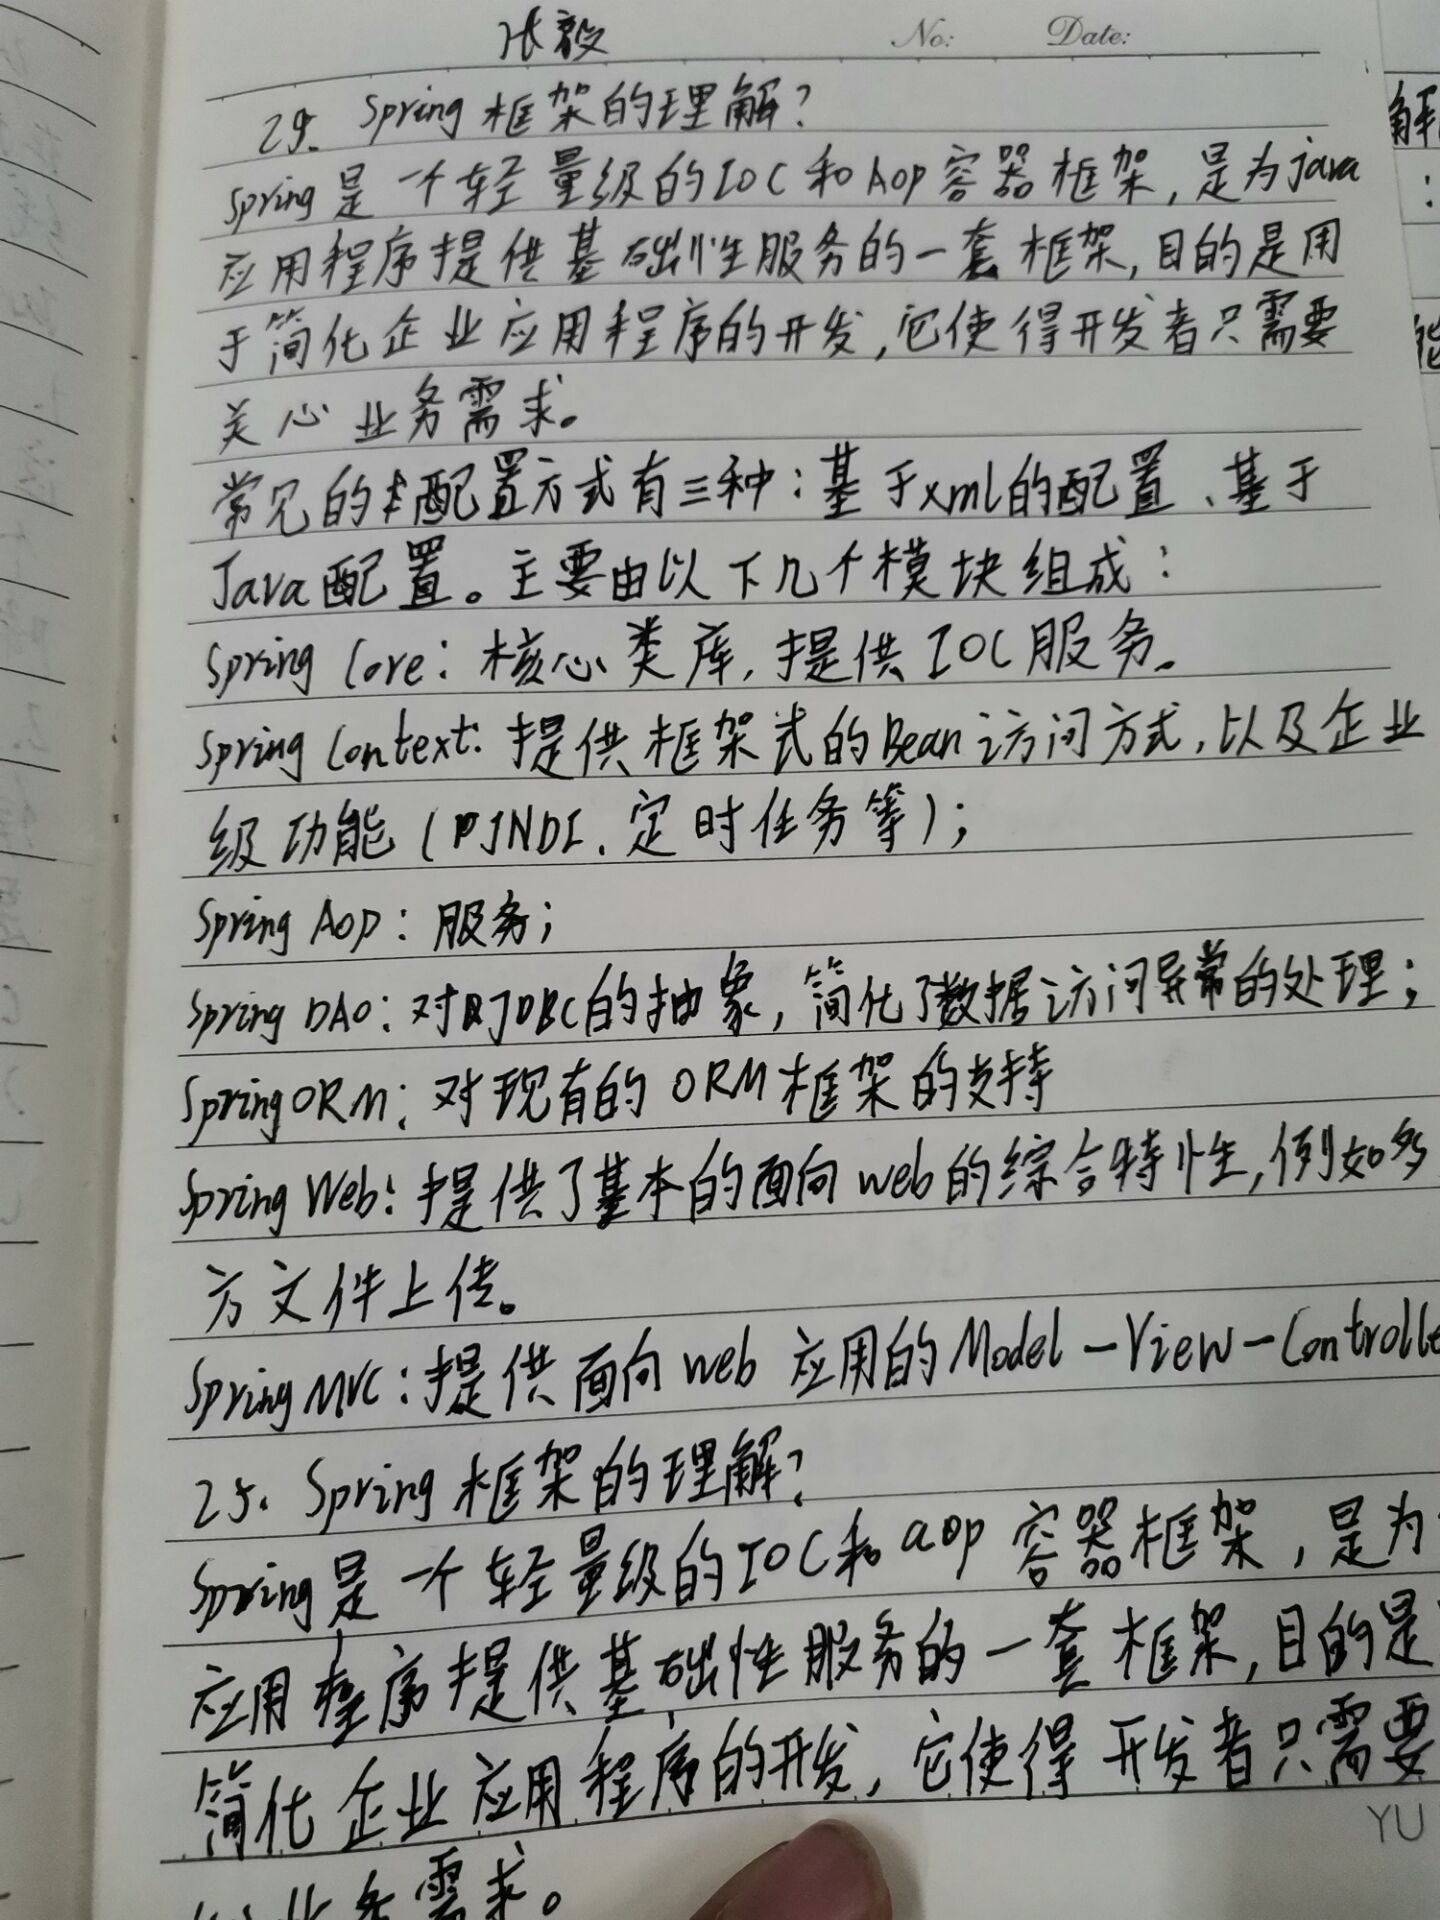 张毅
No: Date:
25. Spring框架的理解?
Spring是一个轻量级的IOC和Aop容器框架,是为java
应用程序提供基础性服务的一套框架,目的是用
于简化企业应用程序的开发,它使得开发者只需要
关心业务需求。
常见的配置方式有三种:基于xml的配置、基于
Java配置。主要由以下几个模块组成:
Spring Core:核心类库,提供IOC服务。
Spring Context:提供框架式的Bean访问方式,以及企业
级功能(JNDI、定时任务等);
Spring Aop:服务;
Spring DAO:对JDBC的抽象,简化了数据访问异常的处理;
Spring ORM:对现有的ORM框架的支持
Spring Web:提供了基本的面向web的综合特性,例如多
方文件上传。
Spring MVC:提供面向web应用的Model-View-Controlle
25. Spring框架的理解?
Spring是一个轻量级的IOC和aop容器框架,是为
应用程序提供基础性服务的一套框架,目的是
简化企业应用程序的开发,它使得开发者只需要
业务需求。
YU
解
:
能